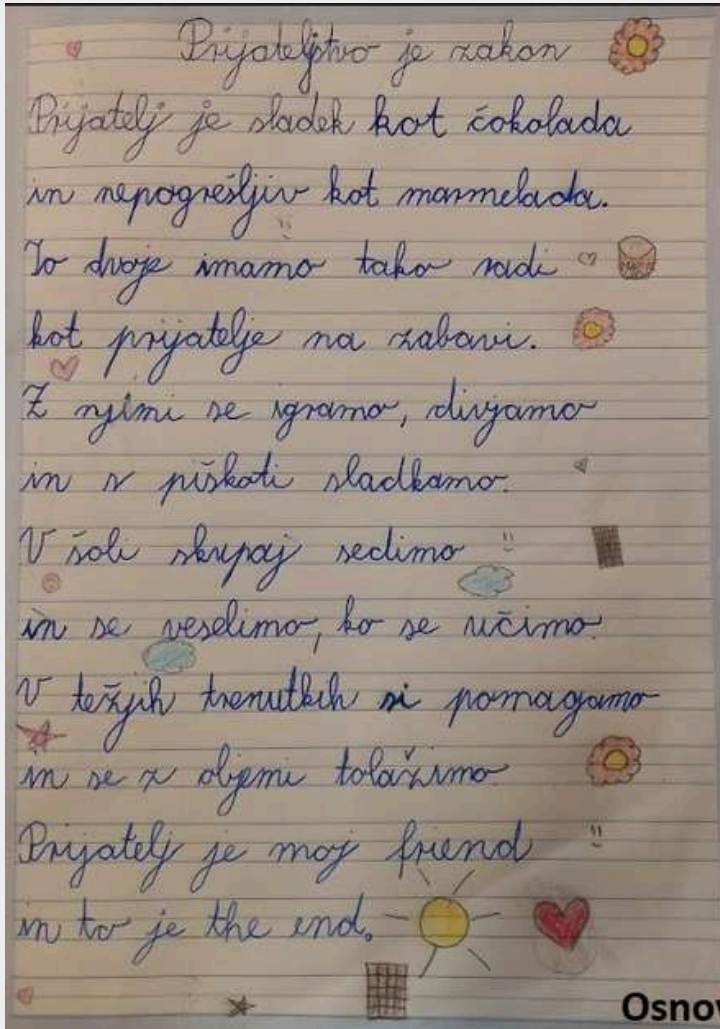 Prijateljstvo je zakon
Prijatelj je sladek kot čokolada
in nepogrešljiv kot marmelada.
To dvoje imamo tako radi
kot prijatelje na zabavi.
Z njimi se igramo, divjamo
in s piškoti sladkamo.
V šoli skupaj sedimo
in se veselimo, ko se učimo.
V težjih trenutkih si pomagamo
in se z objemi tolažimo.
Prijatelj je moj friend
in to je the end.
Osnov